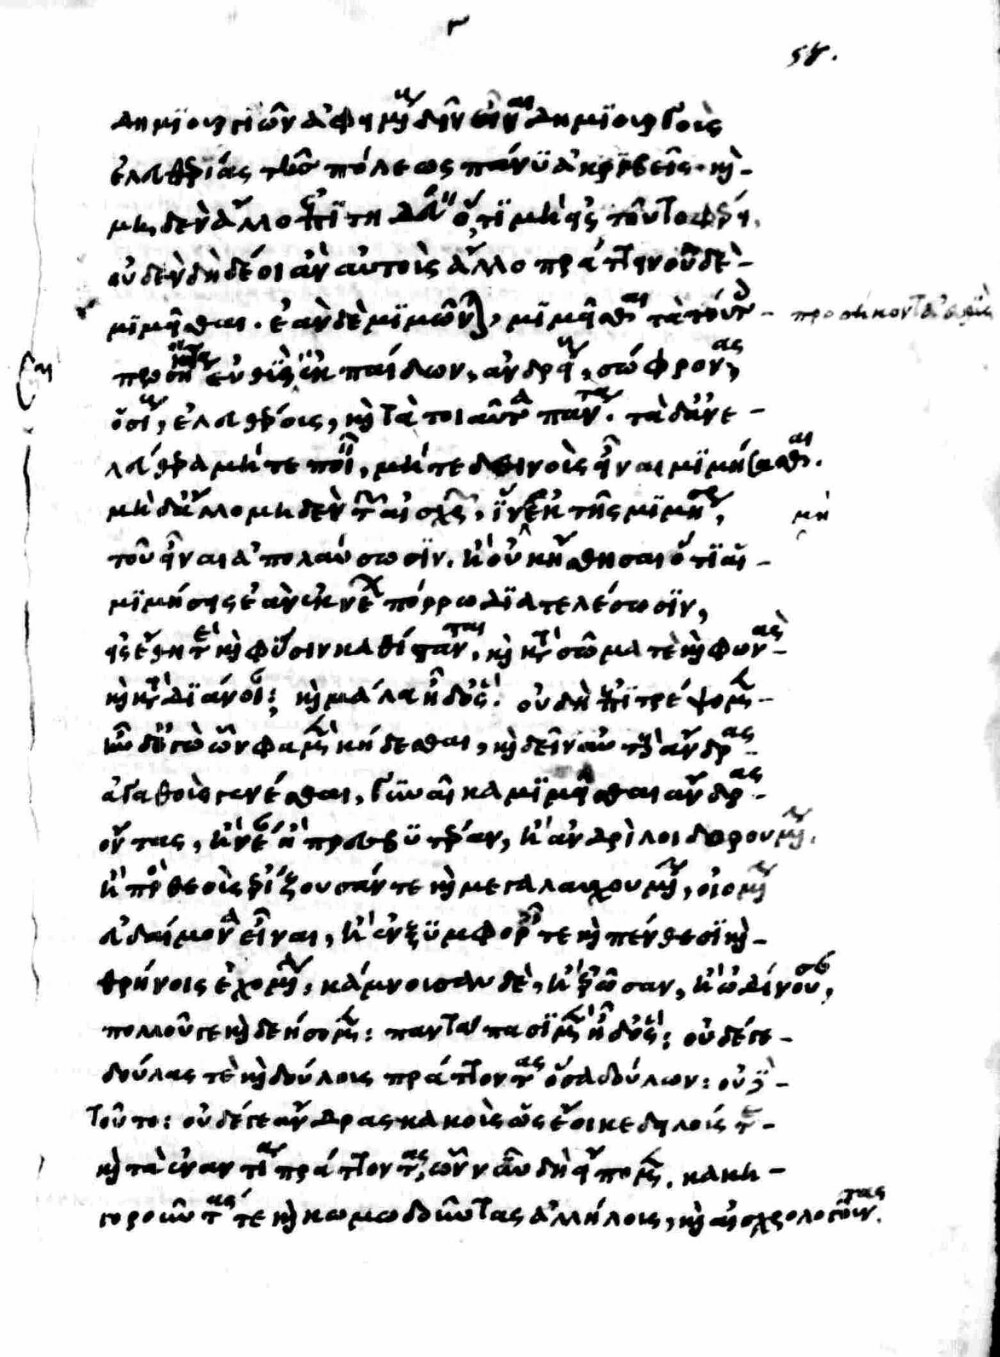 γ
58.
δημιουργιῶν ἀφειμένην εἶναι δημιουργοὺς
ἐλευθερίας τῆς πόλεως πάνυ ἀκριβεῖς. καὶ
μηδὲν ἄλλο ἐπιτηδεύειν ὅ,τι μὴ εἰς τοῦτο φέρει,
οὐδὲν δὴ δέοι ἂν αὐτοὺς ἄλλο πράττειν οὐδὲ
μιμεῖσθαι. ἐὰν δὲ μιμῶνται, μιμεῖσθαι τὰ τούτοις
προσήκοντα εὐθὺς
προσήκοντα εὐθὺς ἐκ παίδων, ἀνδρείους, σώφρονας,
ὁσίους, ἐλευθέρους, καὶ τὰ τοιαῦτα πάντα. τὰ δ' ἀνε-
λεύθερα μήτε ποιεῖν, μήτε δεινοὺς εἶναι μιμήσασθαι.
μὴ δ' ἄλλο μηδὲν τῶν αἰσχρῶν, ἵν' ἐκ τῆς μιμήσεως,
μὴ
τοῦ εἶναι ἀπολαύσωσιν. ἢ οὐκ ᾔσθησαι ὅτι αἱ
μιμήσεις ἐὰν ἐκ νέων πόρρω διατελέσωσιν,
εἰς ἔθη τε καὶ φύσιν καθίστανται, καὶ κατὰ σῶμα τε καὶ φωνὰς
καὶ κατὰ διάνοιαν; καὶ μάλα ἦ δ' ὅς. οὐ δὴ ἐπιτρέψομεν
ὧν δ' ἐγὼ ὧν φαμὲν κήδεσθαι, καὶ δεῖν αὐτοὺς ἄνδρας
ἀγαθοὺς γενέσθαι, γυναῖκα μιμεῖσθαι ἄνδρας
ὄντας, ἢ νέαν ἢ πρεσβυτέραν, ἢ ἀνδρὶ λοιδορουμένην,
ἢ πρὸς θεοὺς ἐρίζουσάν τε καὶ μεγαλαυχουμένην, οἰομένην
εὐδαίμονα εἶναι, ἢ ἐν ξυμφοραῖς τε καὶ πένθεσι καὶ
θρήνοις ἐχομένην, κάμνουσαν δὲ, ἢ ἐρῶσαν, ἢ ὠδίνουσαν,
πολλοῦ γε καὶ δεήσομεν: παντάπασι μὲν ἦ δ' ὅς: οὐδέ γε
δούλας τὲ καὶ δούλους πράττοντας ὅσα δούλων: οὐδὲ
τοῦτο: οὐδέ γε ἄνδρας κακοὺς ὡς ἔοικε δειλούς τε
καὶ τὰ ἐναντία πράττοντας, ὧν νῦν δὴ εἴπομεν. κακη-
γοροῦντάς τε καὶ κωμωδοῦντας ἀλλήλους, καὶ αἰσχρολογοῦντας.